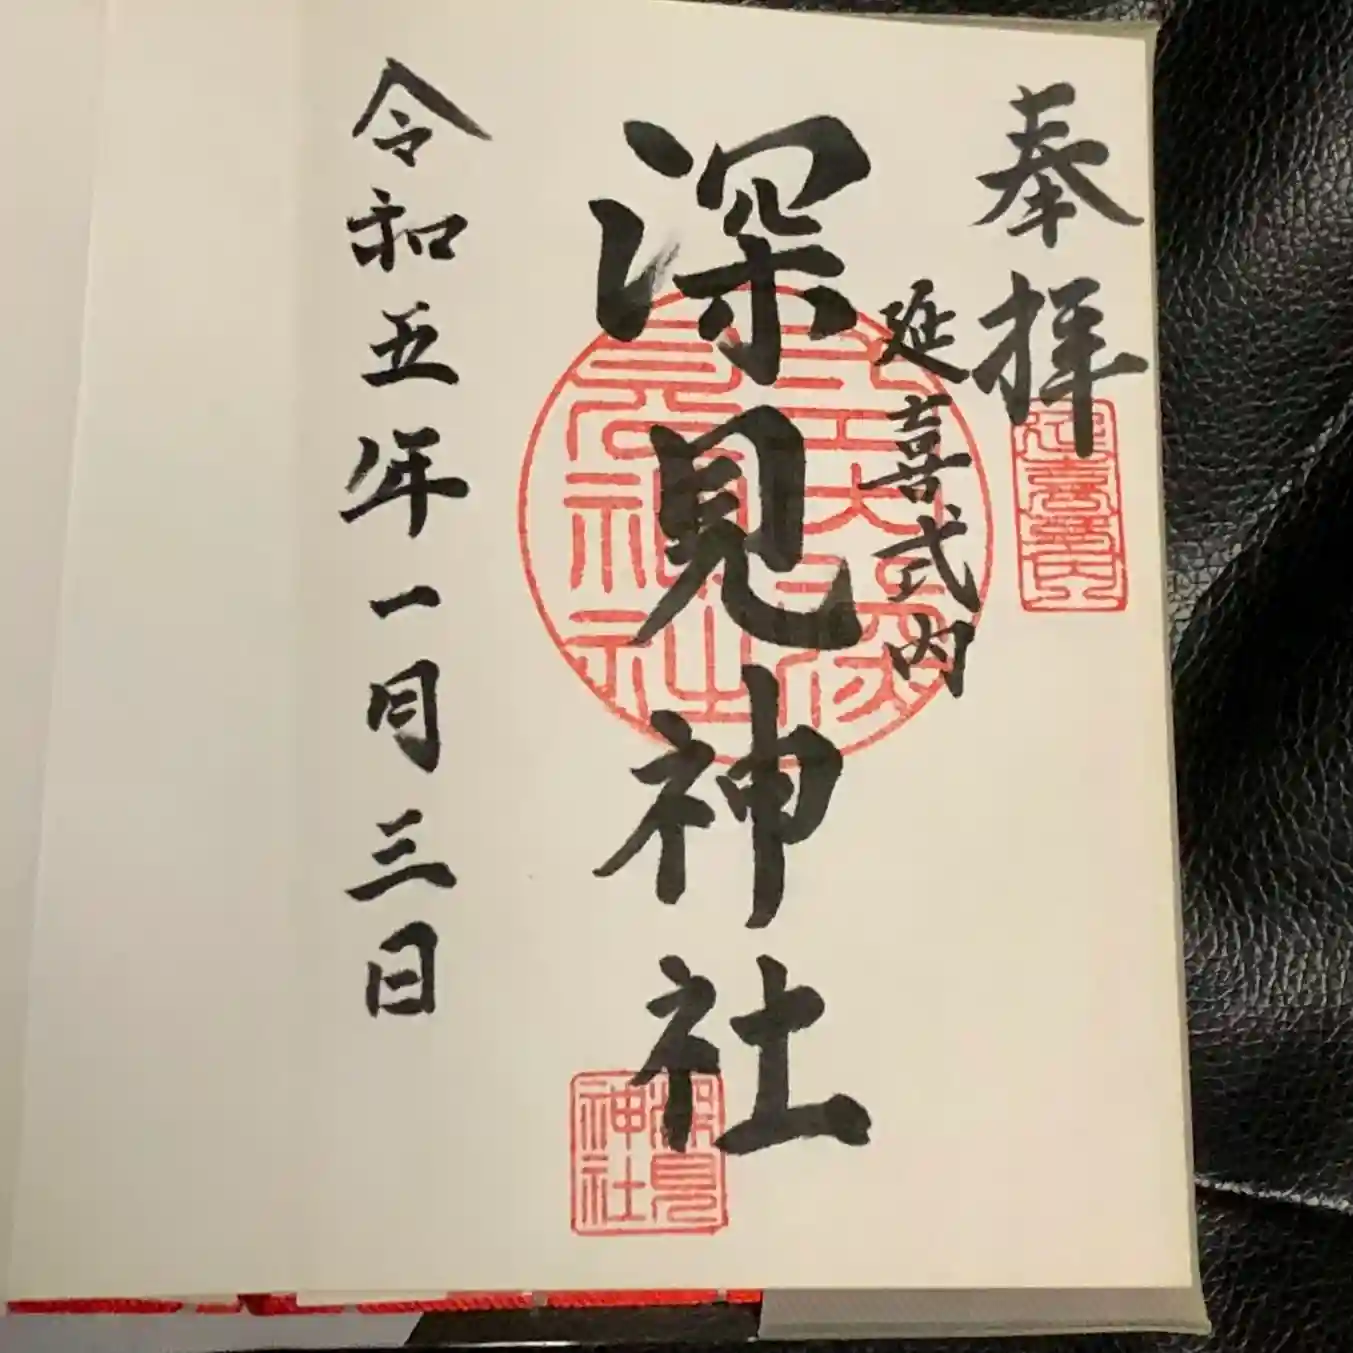 奉拝
延喜式内
延喜式内
深見神社
深見神社
令和五年一月三日